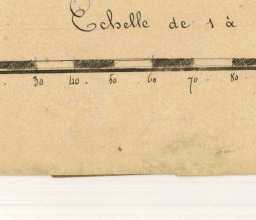 Echelle de 1 à
30 40 50 60 70 80